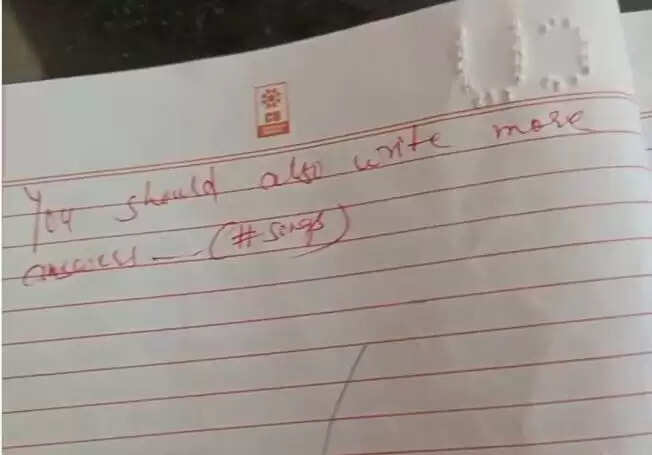 CG
You should also write more
answers — (# Songs)